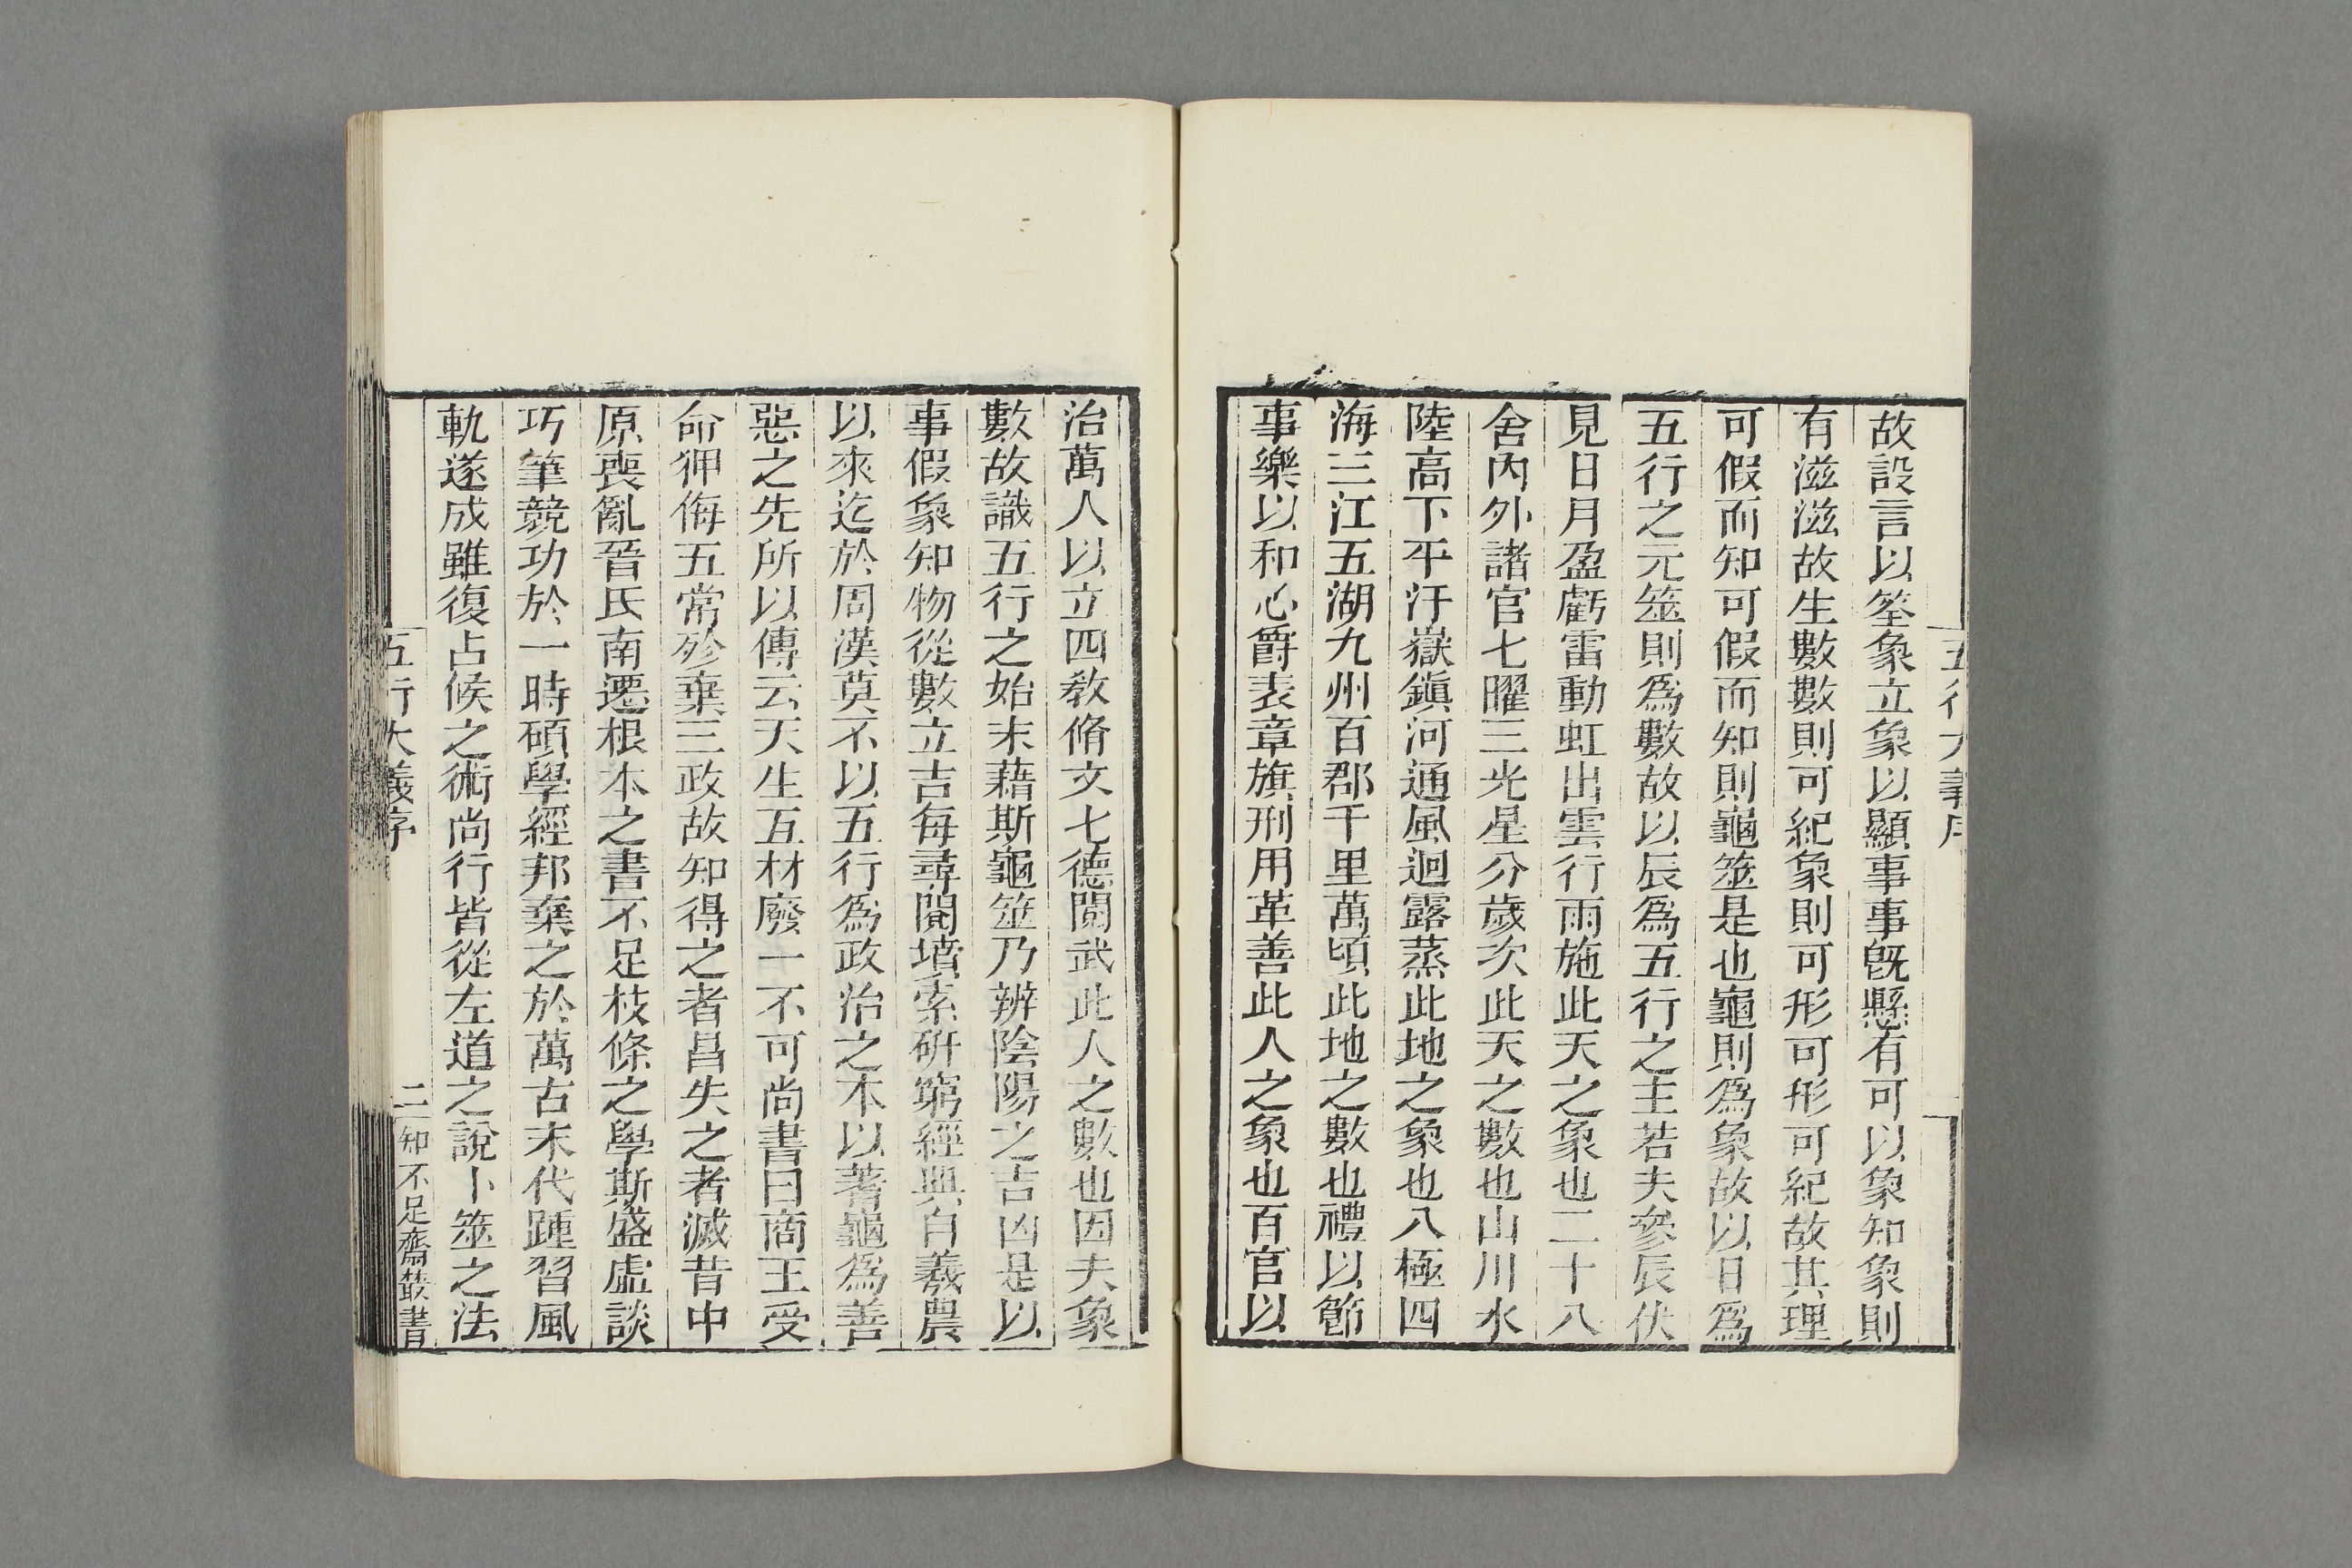 五行大義序
故設言以筌象立象以顯事事旣懸有可以象知象則
有滋滋故生數數則可紀象則可形可形可紀故其理
可假而知可假而知則龜筮是也龜則爲象故以日爲
五行之元筮則爲數故以辰爲五行之主若夫參辰伏
見日月盈虧雷動虹出雲行雨施此天之象也二十八
舍內外諸官七曜三光星分歲次此天之數也山川水
陸高下平汙嶽鎭河通風迴露蒸此地之象也八極四
海三江五湖九州百郡千里萬頃此地之數也禮以節
事樂以和心爵表章旗刑用革善此人之象也百官以
治萬人以立四敎脩文七德閱武此人之數也因夫象
數故識五行之始末藉斯龜筮乃辨陰陽之吉凶是以
事假象知物從數立吉每尋閱墳索硏窮經典自羲農
以來迄於周漢莫不以五行爲政治之本以蓍龜爲善
惡之先所以傳云天生五材廢一不可尚書曰商王受
命狎侮五常殄棄三政故知得之者昌失之者滅昔中
原喪亂晉氏南遷根本之書不足枝條之學斯盛虛談
巧筆競功於一時碩學經邦棄之於萬古末代踵習風
軌遂成雖復占候之術尚行皆從左道之說卜筮之法
五行大義序 二 知不足齋叢書